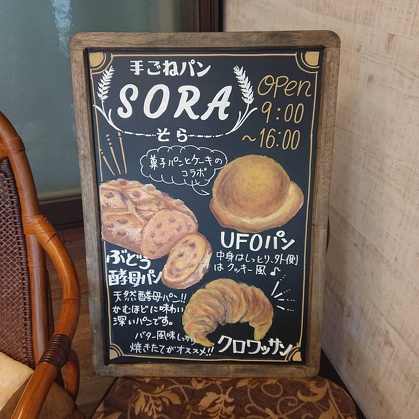 手ごねパン
SORA
そら
OPEN
9:00
～16:00
菓子パンとケーキの
コラボ
UFOパン
中身はしっとり、外側
は クッキー風♪
ぶどう
酵母パン
天然酵母パン!!
かむほどに味わい
深いパンです。
クロワッサン
バター風味しっかり
焼きたてがオススメ!!